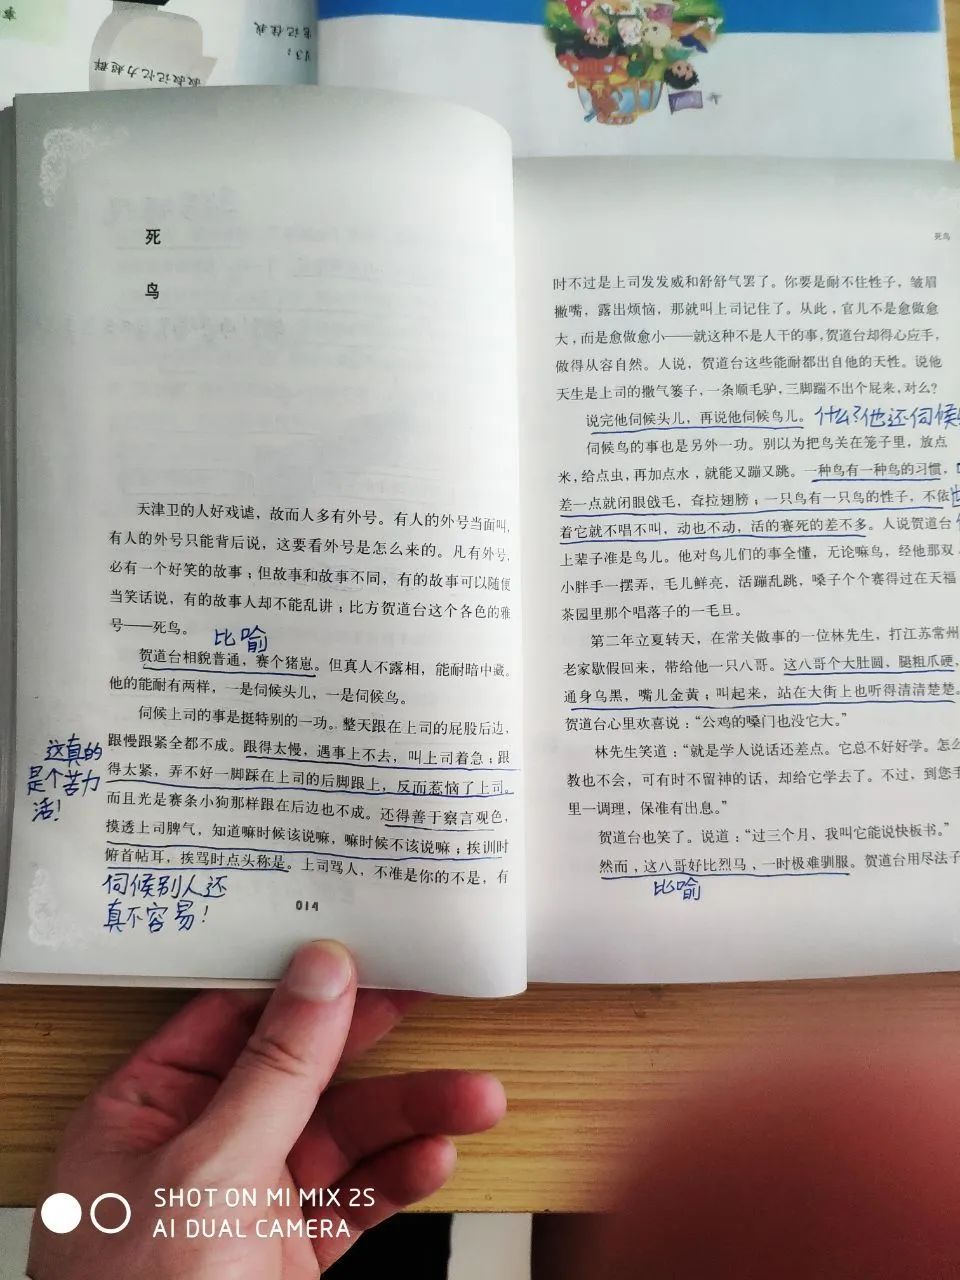 叔叔记忆力超群
死
鸟
天津卫的人好戏谑，故而人多有外号。有人的外号当面叫，
有人的外号只能背后说，这要看外号是怎么来的。凡有外号，
必有一个好笑的故事；但故事和故事不同，有的故事可以随便
当笑话说，有的故事人却不能乱讲；比方贺道台这个各色的雅
号——死鸟。
比喻
贺道台相貌普通，赛个猪崽。但真人不露相，能耐暗中藏。
他的能耐有两样，一是伺候头儿，一是伺候鸟。
伺候上司的事是挺特别的一功。整天跟在上司的屁股后边，
跟慢跟紧全都不成。跟得太慢，遇事上不去，叫上司着急；跟
得太紧，弄不好一脚踩在上司的后脚跟上，反而惹恼了上司。
而且光是赛条小狗那样跟在后边也不成。还得善于察言观色，
摸透上司脾气，知道嘛时候该说嘛，嘛时候不该说嘛；挨训时
俯首帖耳，挨骂时点头称是。上司骂人，不准是你的不是，有
这真的
是个苦力
活！
伺候别人还
真不容易！
014
死鸟
时不过是上司发发威和舒舒气罢了。你要是耐不住性子，皱眉
撇嘴，露出烦恼，那就叫上司记住了。从此，官儿不是愈做愈
大，而是愈做愈小——就这种不是人干的事，贺道台却得心应手，
做得从容自然。人说，贺道台这些能耐都出自他的天性。说他
天生是上司的撒气篓子，一条顺毛驴，三脚踹不出个屁来，对么？
说完他伺候头儿，再说他伺候鸟儿。
什么？他还伺候
伺候鸟的事也是另外一功。别以为把鸟关在笼子里，放点
米，给点虫，再加点水，就能又蹦又跳。一种鸟有一种鸟的习惯，
差一点就闭眼戗毛，耷拉翅膀；一只鸟有一只鸟的性子，不依
着它就不唱不叫，动也不动，活的赛死的差不多。人说贺道台
上辈子准是鸟儿。他对鸟儿们的事全懂，无论嘛鸟，经他那双
小胖手一摆弄，毛儿鲜亮，活蹦乱跳，嗓子个个赛得过在天福
茶园里那个唱落子的一毛旦。
第二年立夏转天，在常关做事的一位林先生，打江苏常州
老家歇假回来，带给他一只八哥。这八哥个大肚圆，腿粗爪硬，
通身乌黑，嘴儿金黄；叫起来，站在大街上也听得清清楚楚。
贺道台心里欢喜说：“公鸡的嗓门也没它大。”
林先生笑道：“就是学人说话还差点。它总不好好学。怎么
教也不会，可有时不留神的话，却给它学去了。不过，到您手
里一调理，保准有出息。”
贺道台也笑了。说道：“过三个月，我叫它能说快板书。”
然而，这八哥好比烈马，一时极难驯服。贺道台用尽法子
比喻
SHOT ON MI MIX 2S
AI DUAL CAMERA